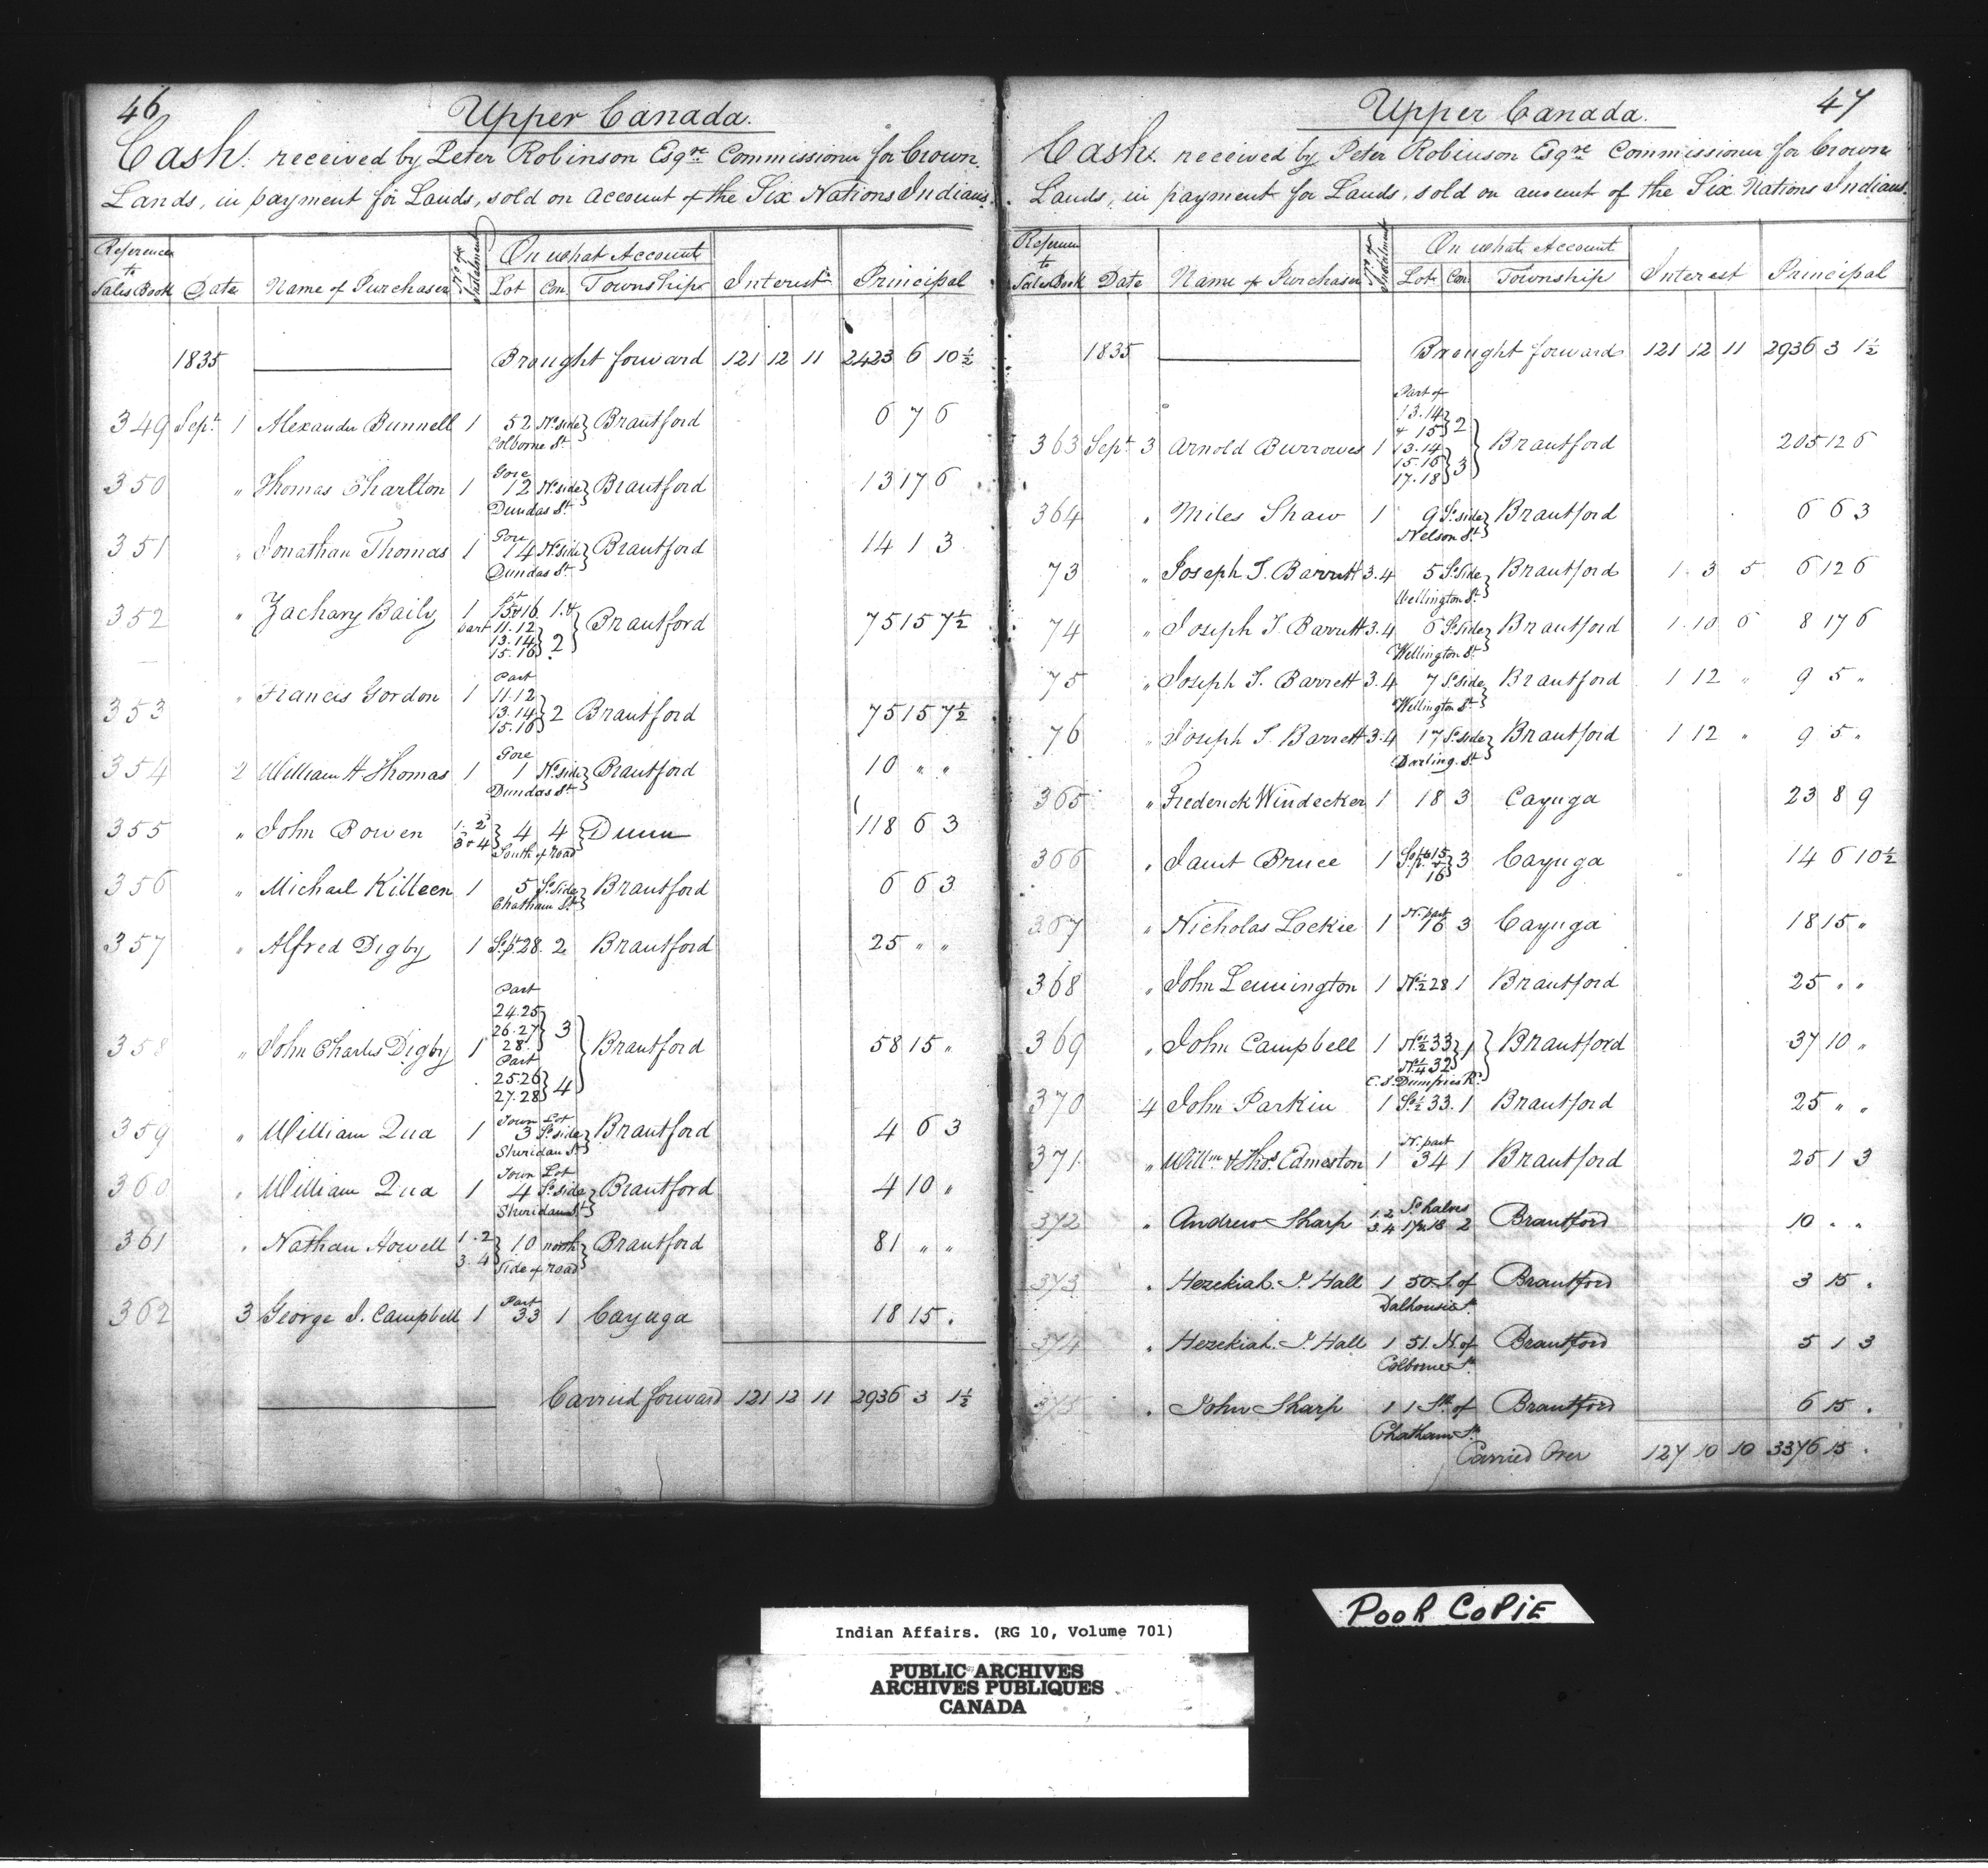 46
Upper Canada.
Cash. received by Peter Robinson Esqre Commissioner for Crown
Lands, in payment for Lands, sold on account of the Six Nations Indians.
Reference to Sales Book Date Name of Purchaser No of Instalment On what Account Lot Con. Township Interest Principal
1835 Brought forward 121 12 11 2423 6 10½
349 Sept. 1 Alexander Bunnell 1 52 No side Colborne St. Brantford 6 7 6
350 " Thomas Charlton 1 Gore 12 No side Dundas St. Brantford 13 17 6
351 " Jonathan Thomas 1 Gore 14 No side Dundas St. Brantford 14 1 3
352 " Zachary Baily 1 pt 15 & 16 1 & part 11.12 13.14 15.16 2 Brantford 75 15 7½
353 " Francis Gordon 1 Part 11.12 13.14 15.16 2 Brantford 75 15 7½
354 2 William H Thomas 1 Gore 1 No side Dundas St. Brantford 10 " "
355 " John Bowen 1.2 3 & 4 4 4 South of road Dunn 118 6 3
356 " Michael Killeen 1 5 So. side Chatham St. Brantford 6 6 3
357 " Alfred Digby 1 S. pt 28. 2 Brantford 25 " "
358 " John Charles Digby 1 Part 24.25 26.27 28 3 Part 25.26 27.28 4 Brantford 58 15 "
359 " William Qua 1 Town Lot 3 So side Sheridan St. Brantford 4 6 3
360 " William Qua 1 Town Lot 4 So side Sheridan St. Brantford 4 10 "
361 " Nathan Howell 1.2 3 4 10 north Side of road Brantford 81 " "
362 3 George J. Campbell 1 Part 33 1 Cayuga 18 15 .
Carried forward 121 12 11 2936 3 1½
47
Upper Canada.
Cash. received by Peter Robinson Esqre Commissioner for Crown
Lands, in payment for Lands, sold on account of the Six Nations Indians.
Reference to Sales Book Date Name of Purchaser No of Instalment On what Account Lot Con Township Interest Principal
1835 Brought forward 121 12 11 2936 3 1½
363 Sept. 3 Arnold Burrowes 1 Part of 13.14 & 15 2 13.14 15.16 17.18 3 Brantford 205 12 6
364 " Miles Shaw 1 9 So. side Nelson St. Brantford 6 6 3
73 " Joseph T. Barrett 3.4 5 So. Side Wellington St. Brantford 1 3 5 6 12 6
74 " Joseph T. Barrett 3.4 6 So. Side Wellington St. Brantford 1 10 6 8 17 6
75 " Joseph T. Barrett 3.4 7 So. side Wellington St. Brantford 1 12 " 9 5 "
76 " Joseph T. Barrett 3.4 17 So. side Darling. St. Brantford 1 12 " 9 5 "
365 " Frederick Windecker 1 18 3 Cayuga 23 8 9
366 " Janet Bruce 1 15 & 16 3 Cayuga 14 6 10½
367 " Nicholas Lockie 1 N. part 16 3 Cayuga 18 15 "
368 " John Lemington 1 N½ 28 1 Brantford 25 " "
369 " John Campbell 1 N½ 33 N¼ 32 1 E.S. Dumfries Rd. Brantford 37 10 "
370 4 John Parkin 1 S½ 33. 1 Brantford 25 " "
371 " Willm & Thos. Edmeston 1 N. part 34 1 Brantford 25 1 3
372 " Andrew Sharp 1.2 3.4 So halves 17 & 18 2 Brantford 10 " "
373 " Hezekiah. J. Hall 1 50 S. of Dalhousie St. Brantford 3 15 .
374 " Hezekiah. J. Hall 1 51. N. of Colborne St. Brantford 5 1 3
375 " John Sharp 1 1 Sth. of Chatham St. Brantford 6 15 .
Carried Over 127 10 10 3376 15 .
POOR COPIE
Indian Affairs. (RG 10, Volume 701)
PUBLIC ARCHIVES
ARCHIVES PUBLIQUES
CANADA